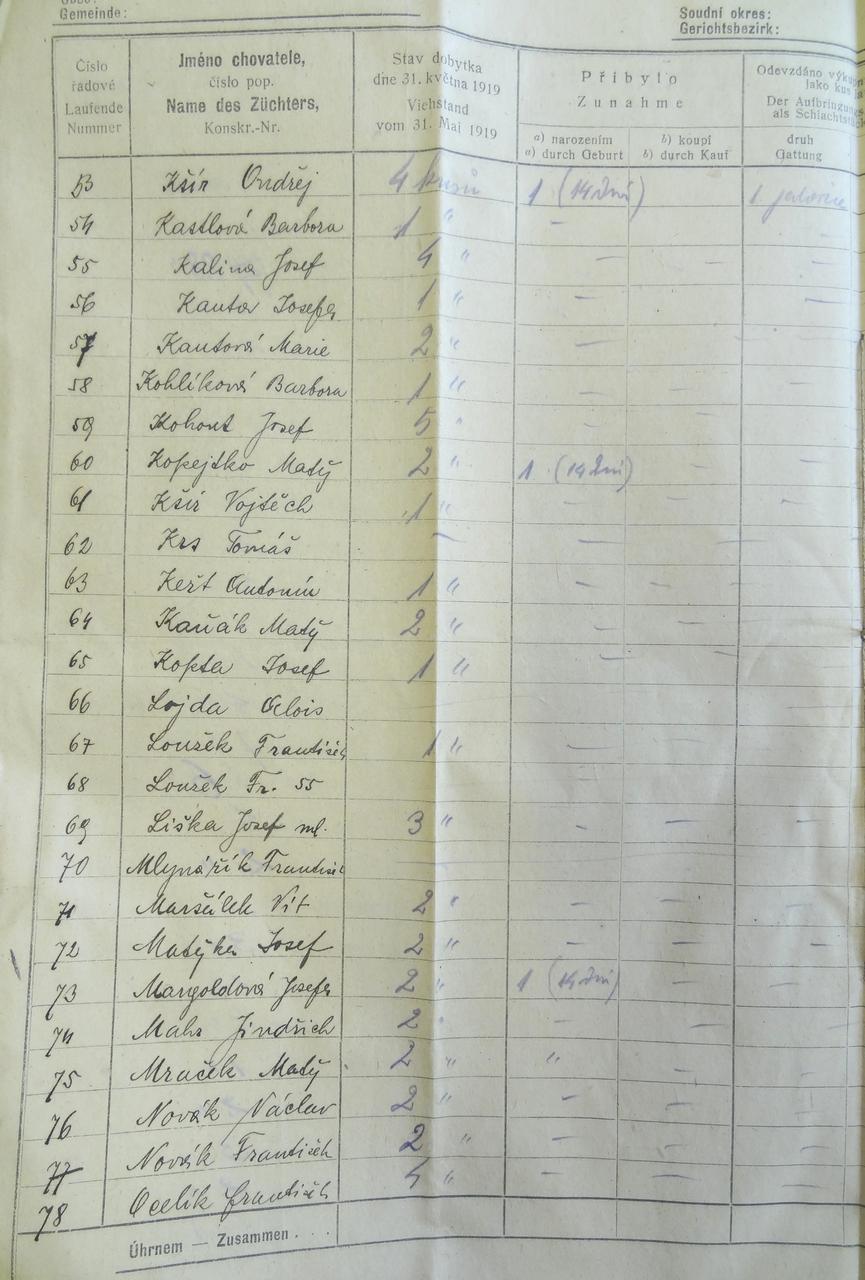 Gemeinde:
Soudní okres:
Gerichtsbezirk:
Číslo řadové Laufende Nummer
Jméno chovatele, číslo pop. Name des Züchters, Konskr.-Nr.
Stav dobytka dne 31. května 1919 Viehstand vom 31. Mai 1919
Přibylo Zunahme
a) narozením a) durch Geburt
b) koupí b) durch Kauf
Odevzdáno jako Der als
druh Gattung
53 Kšír Ondřej 4 kusů 1 (14 dní) 1 jalovice
54 Kastlová Barbora 1 " —
55 Kalina Josef 4 " — — —
56 Kantor Josef 1 " — —
57 Kantová Marie 2 " — —
58 Kohlíková Barbora 1 " — — —
59 Kohout Josef 5 " — — —
60 Kopejtko Matěj 2 " 1 (14 dní) — —
61 Kšír Vojtěch 1 " — — —
62 Krs Tomáš — — — —
63 Keřt Antonín 1 " — — —
64 Kaňák Matěj 2 " — —
65 Kopta Josef 1 " —
66 Lojda Alois
67 Louzek František 1 " — —
68 Louzek Fr. 55
69 Liška Josef ml. 3 " — — —
70 Mlynářík František
71 Maršálek Vít 2 " — — —
72 Matějka Josef 2 " — — —
73 Mangoldová Josefa 2 " 1 (14 dní) —
74 Mahr Jindřich 2 " — — —
75 Mraček Matěj 2 " " —
76 Novák Václav 2 " — — —
77 Novák František 2 " — — —
78 Ocelík František 4 " — — —
Úhrnem — Zusammen .